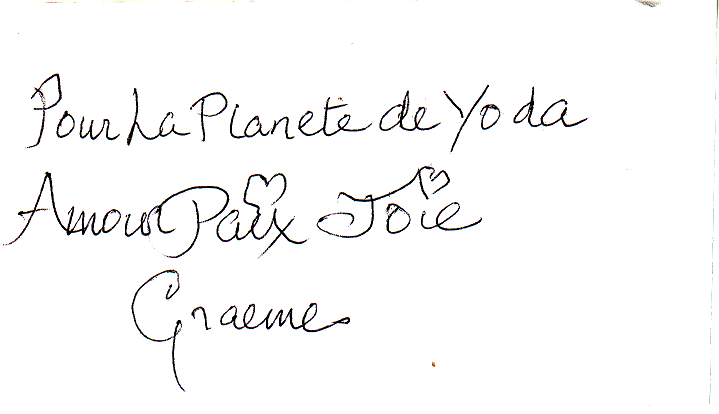 Pour La Planete de Yoda
Amour Paix Joie
Graeme